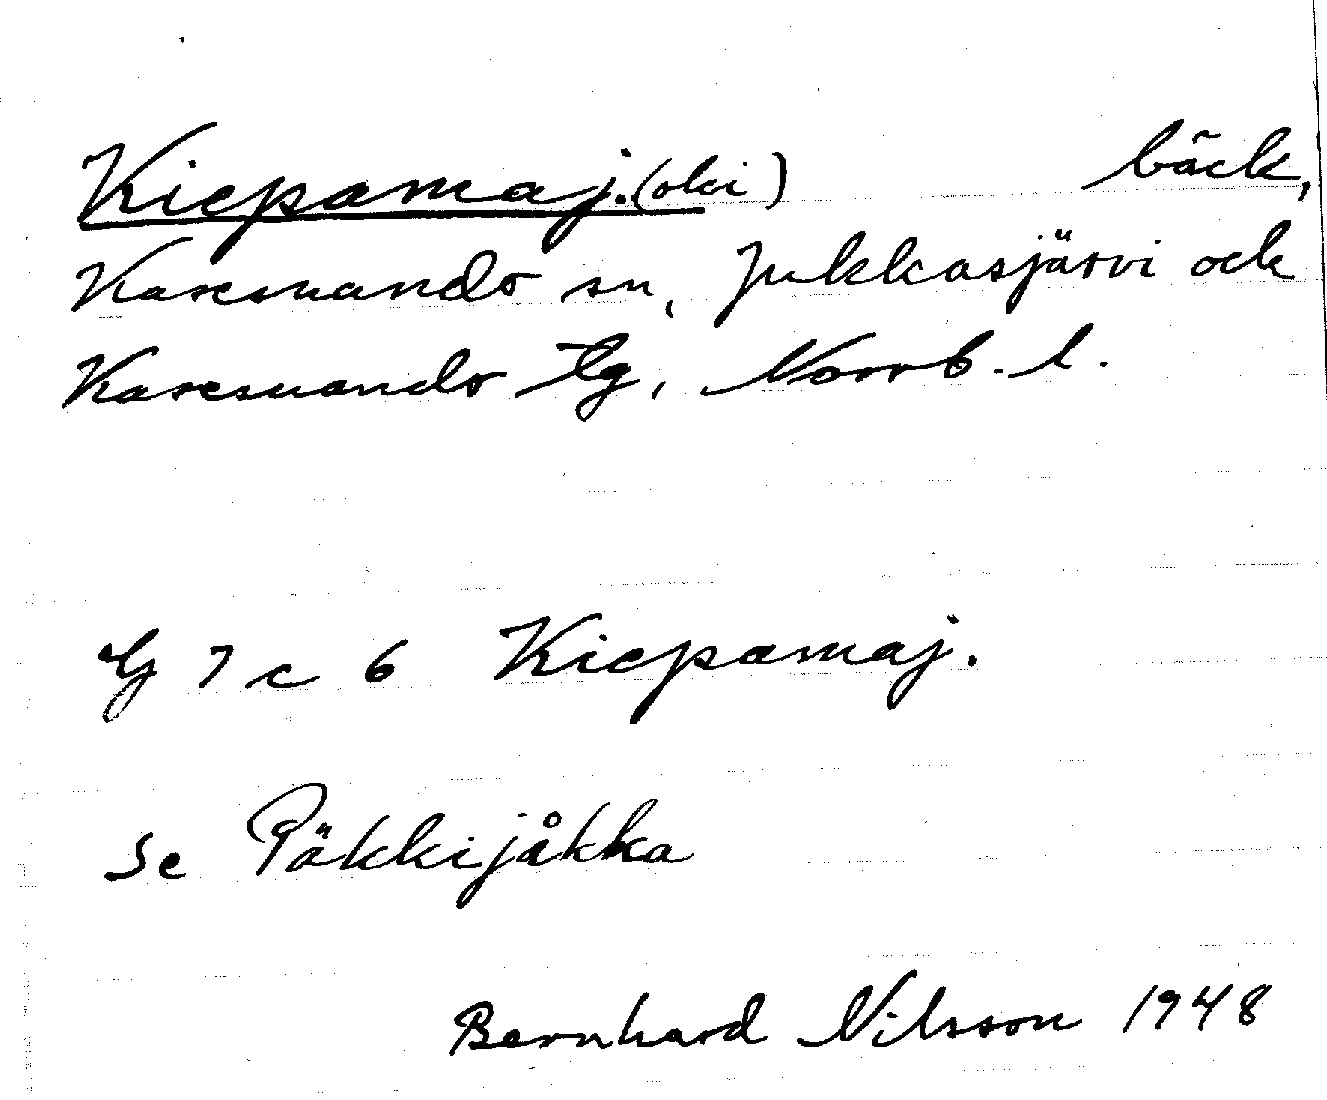 Kiepamaj.(oki) bäck,
Karesuando sn, Jukkasjärvi och
Karesuando tg, Norrb. l.
G 7 c 6 Kiepamaj.
Se Päkkijåkka
Bernhard Nilsson 1948